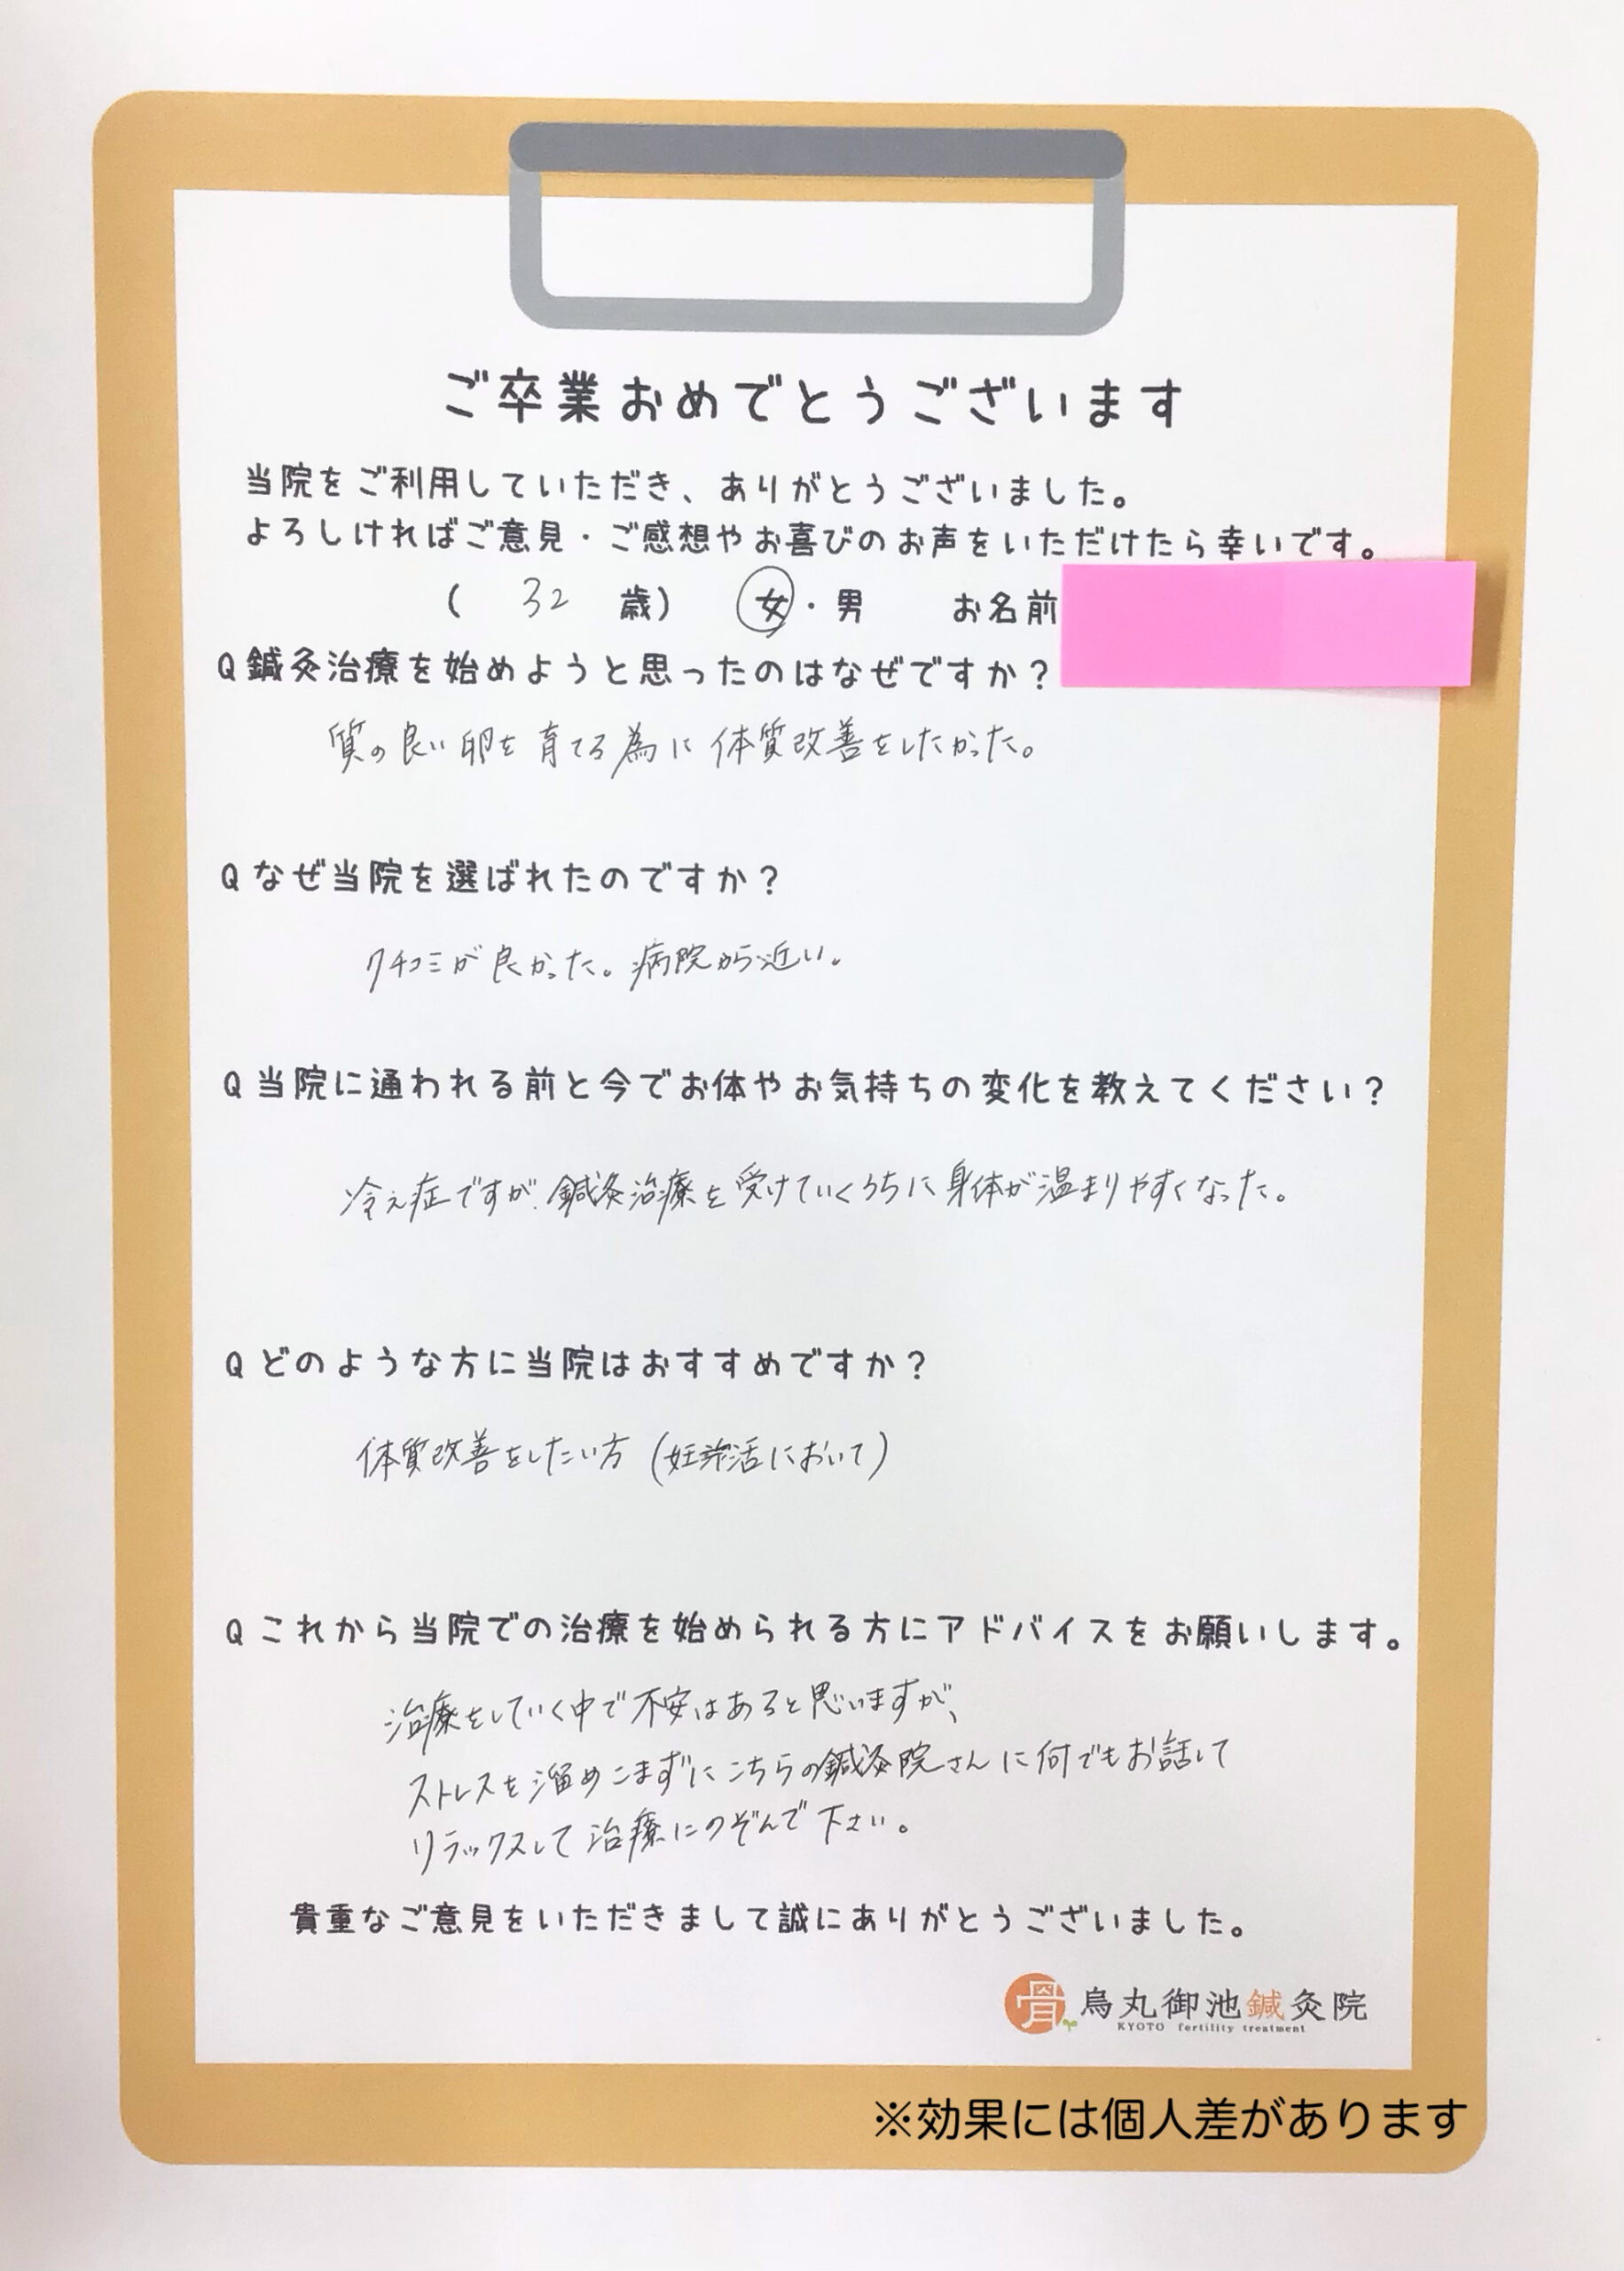 ご卒業おめでとうございます
当院をご利用していただき、ありがとうございました。
よろしければご意見・ご感想やお喜びのお声をいただけたら幸いです。
( 32 歳) 女・男 お名前
Q鍼灸治療を始めようと思ったのはなぜですか?
質の良い卵を育てる為に体質改善をしたかった。
Qなぜ当院を選ばれたのですか?
クチコミが良かった。病院から近い。
Q当院に通われる前と今でお体やお気持ちの変化を教えてください?
冷え症ですが、鍼灸治療を受けていくうちに身体が温まりやすくなった。
Qどのような方に当院はおすすめですか?
体質改善をしたい方(妊活において)
Qこれから当院での治療を始められる方にアドバイスをお願いします。
治療をしていく中で不安はあると思いますが、
ストレスを溜めこまずにこちらの鍼灸院さんに何でもお話して
リラックスして治療にのぞんで下さい。
貴重なご意見をいただきまして誠にありがとうございました。
骨 烏丸御池鍼灸院
KYOTO fertility treatment
※効果には個人差があります